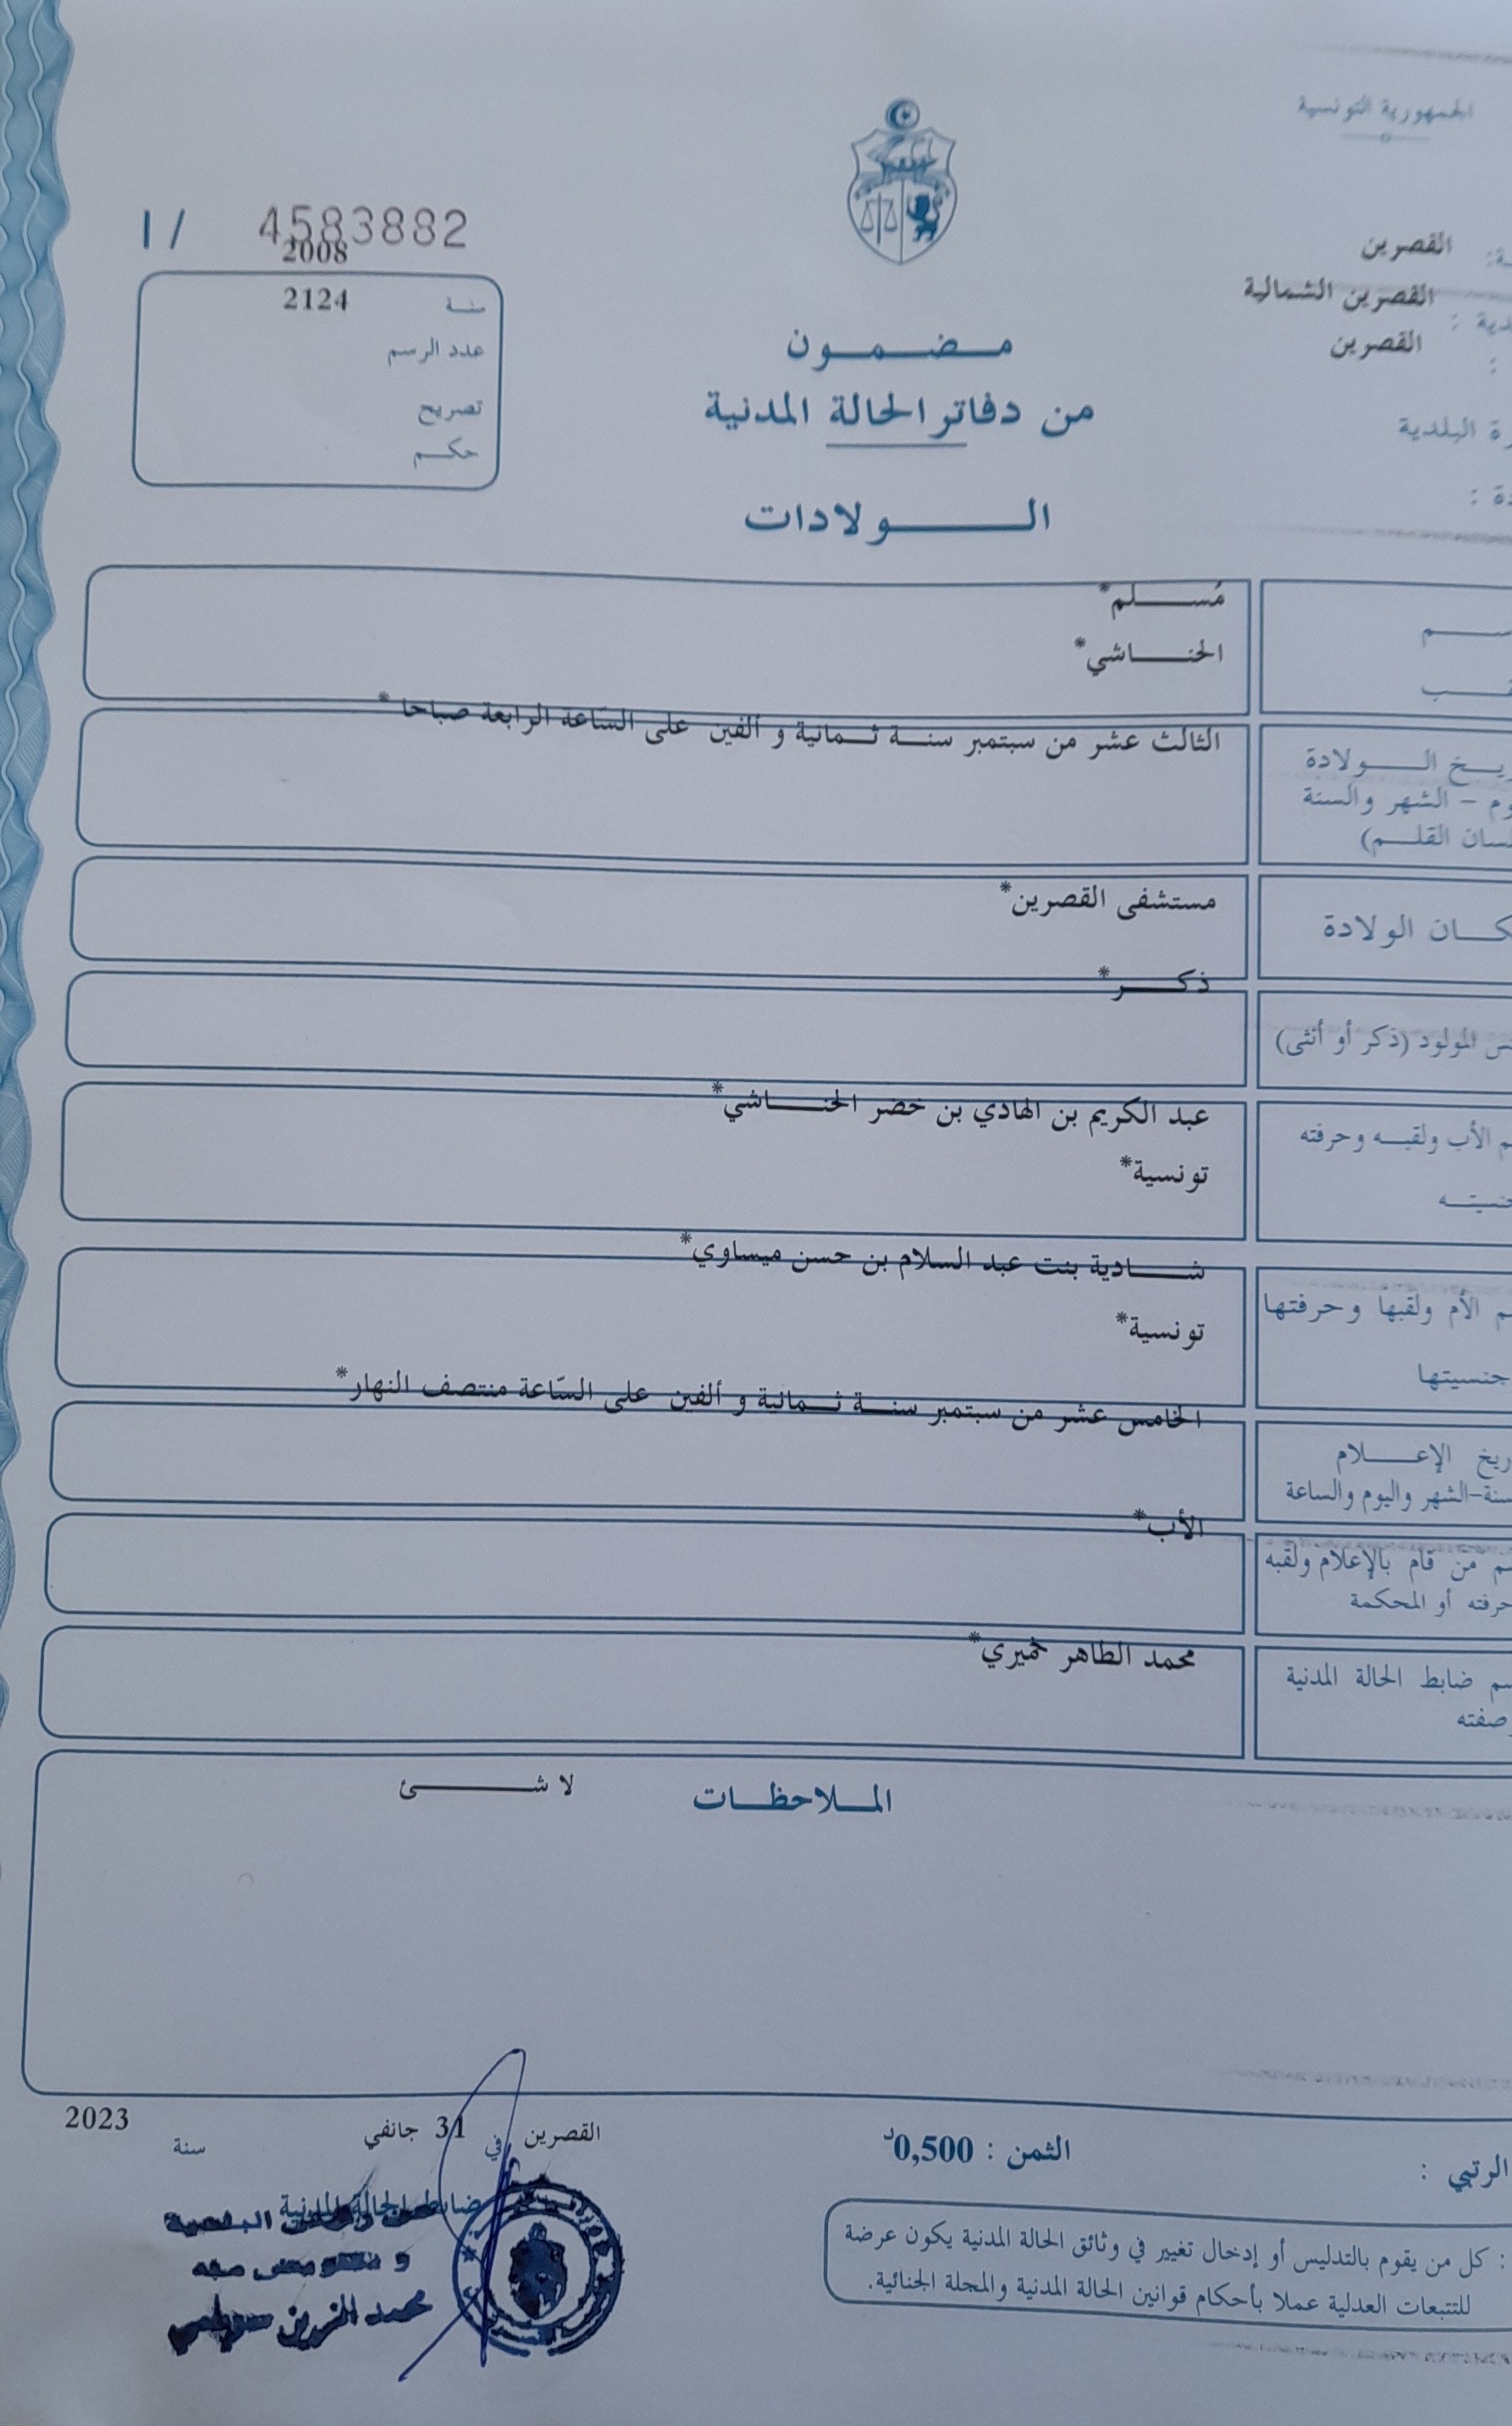 الجمهورية التونسية
القصرين
القصرين الشمالية
القصرين
البلدية
I / 4583882
2008
سنة 2124
عدد الرسم
تصريح
حكم
مضمون
من دفاتر الحالة المدنية
الولادات
مُسلم*
الحناشي*
الولادة
الثالث عشر من سبتمبر سنة ثمانية و ألفين على السّاعة الرابعة صباحا *
– الشهر والسنة
القلم)
الولادة
مستشفى القصرين*
المولود (ذكر أو أنثى)
ذكر*
الأب ولقبه وحرفته
عبد الكريم بن الهادي بن خضر الحناشي*
تونسية*
الأم ولقبها وحرفتها
شادية بنت عبد السلام بن حسن ميساوي*
جنسيتها
تونسية*
الإعلام
الخامس عشر من سبتمبر سنة ثمانية و ألفين على السّاعة منتصف النهار*
سنة-الشهر واليوم والساعة
من قام بالإعلام ولقبه
الأب*
حرفته أو المحكمة
ضابط الحالة المدنية
محمد الطاهر خميري*
صفته
الملاحظات
لا شئ
القصرين في 31 جانفي سنة 2023
ضابط الحالة المدنية
الرتبي :
الثمن : 0,500د
: كل من يقوم بالتدليس أو إدخال تغيير في وثائق الحالة المدنية يكون عرضة
للتتبعات العدلية عملا بأحكام قوانين الحالة المدنية والمجلة الجنائية.